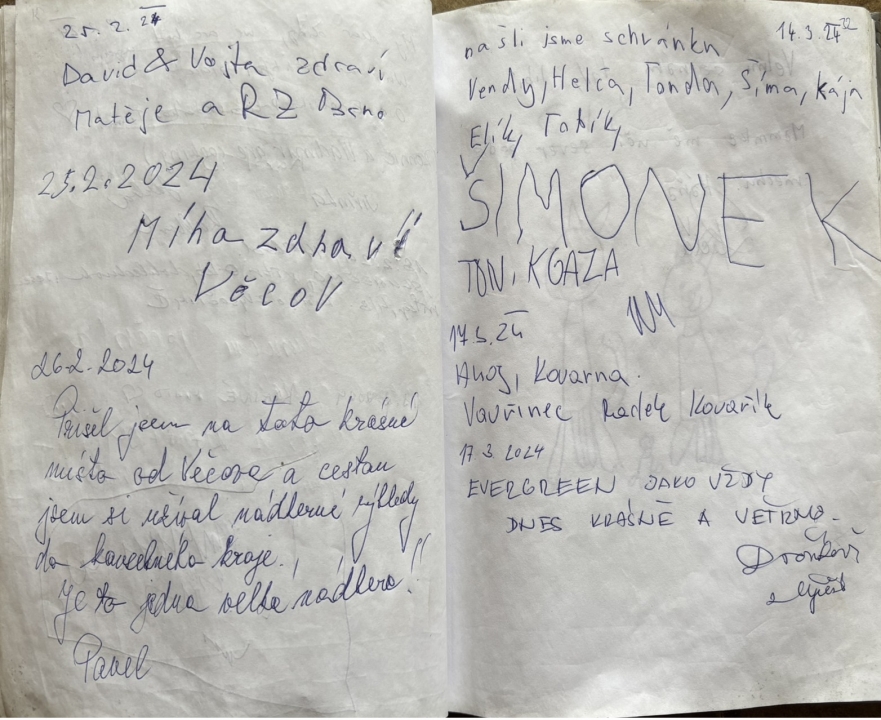 25. 2. 24
David & Vojta zdraví
Matěje a RZ Brno
25.2.2024
Míha zdraví
Věcov
26.2.2024
Přišel jsem na toto krásné
místo od Věcova a cestou
jsem si užíval nádherné výhledy
do kouzelného kraje.
Je to jedna velká nádhera!!
Pavel
našli jsme schránku 14.3.24
Vendy, Helča, Tonda, Šíma, Kája
Elík, Tobík
ŠIMONEK
TONIK GAZA
17.3.24
Ahoj, Kovarna.
Vavřinec Radek Kovařík
17 3 2024
EVERGREEN JAKO VŽDY
DNES KRÁSNĚ A VĚTRNO.